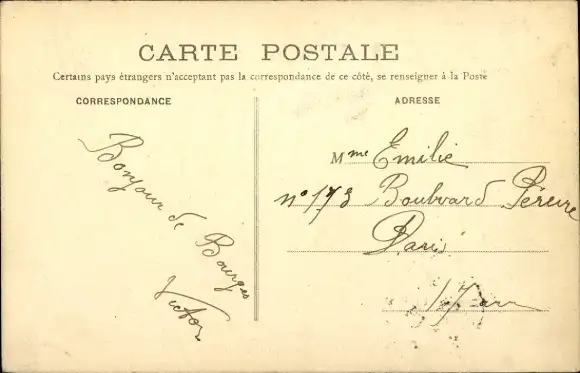 CARTE POSTALE
Certains pays étrangers n'acceptant pas la correspondance de ce côté, se renseigner à la Poste
CORRESPONDANCE
Bonjour de Bourges
Victor
ADRESSE
Mme Emilie
n° 173 Boulvard Péreire
Paris
17 arr